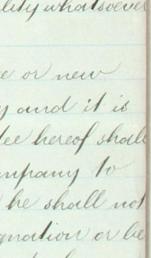 lity whatsoever
e or new
y and it is
tee hereof shall
mpany to
he shall not
gnation or be